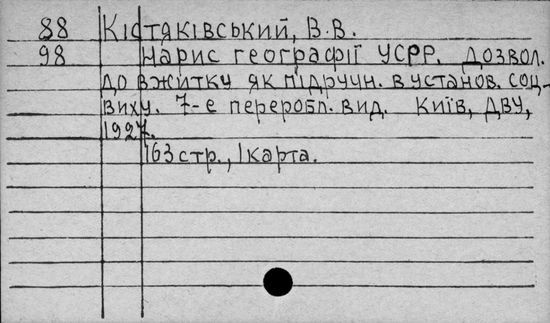 88 Кістяківський, В.В.
98 Нарис географії УСРР. Дозвол.
до вжитку як підручн. в установ. соц-
виху. 7-е переробл. вид. Київ, ДВУ,
1927.
163 стр., 1 карта.